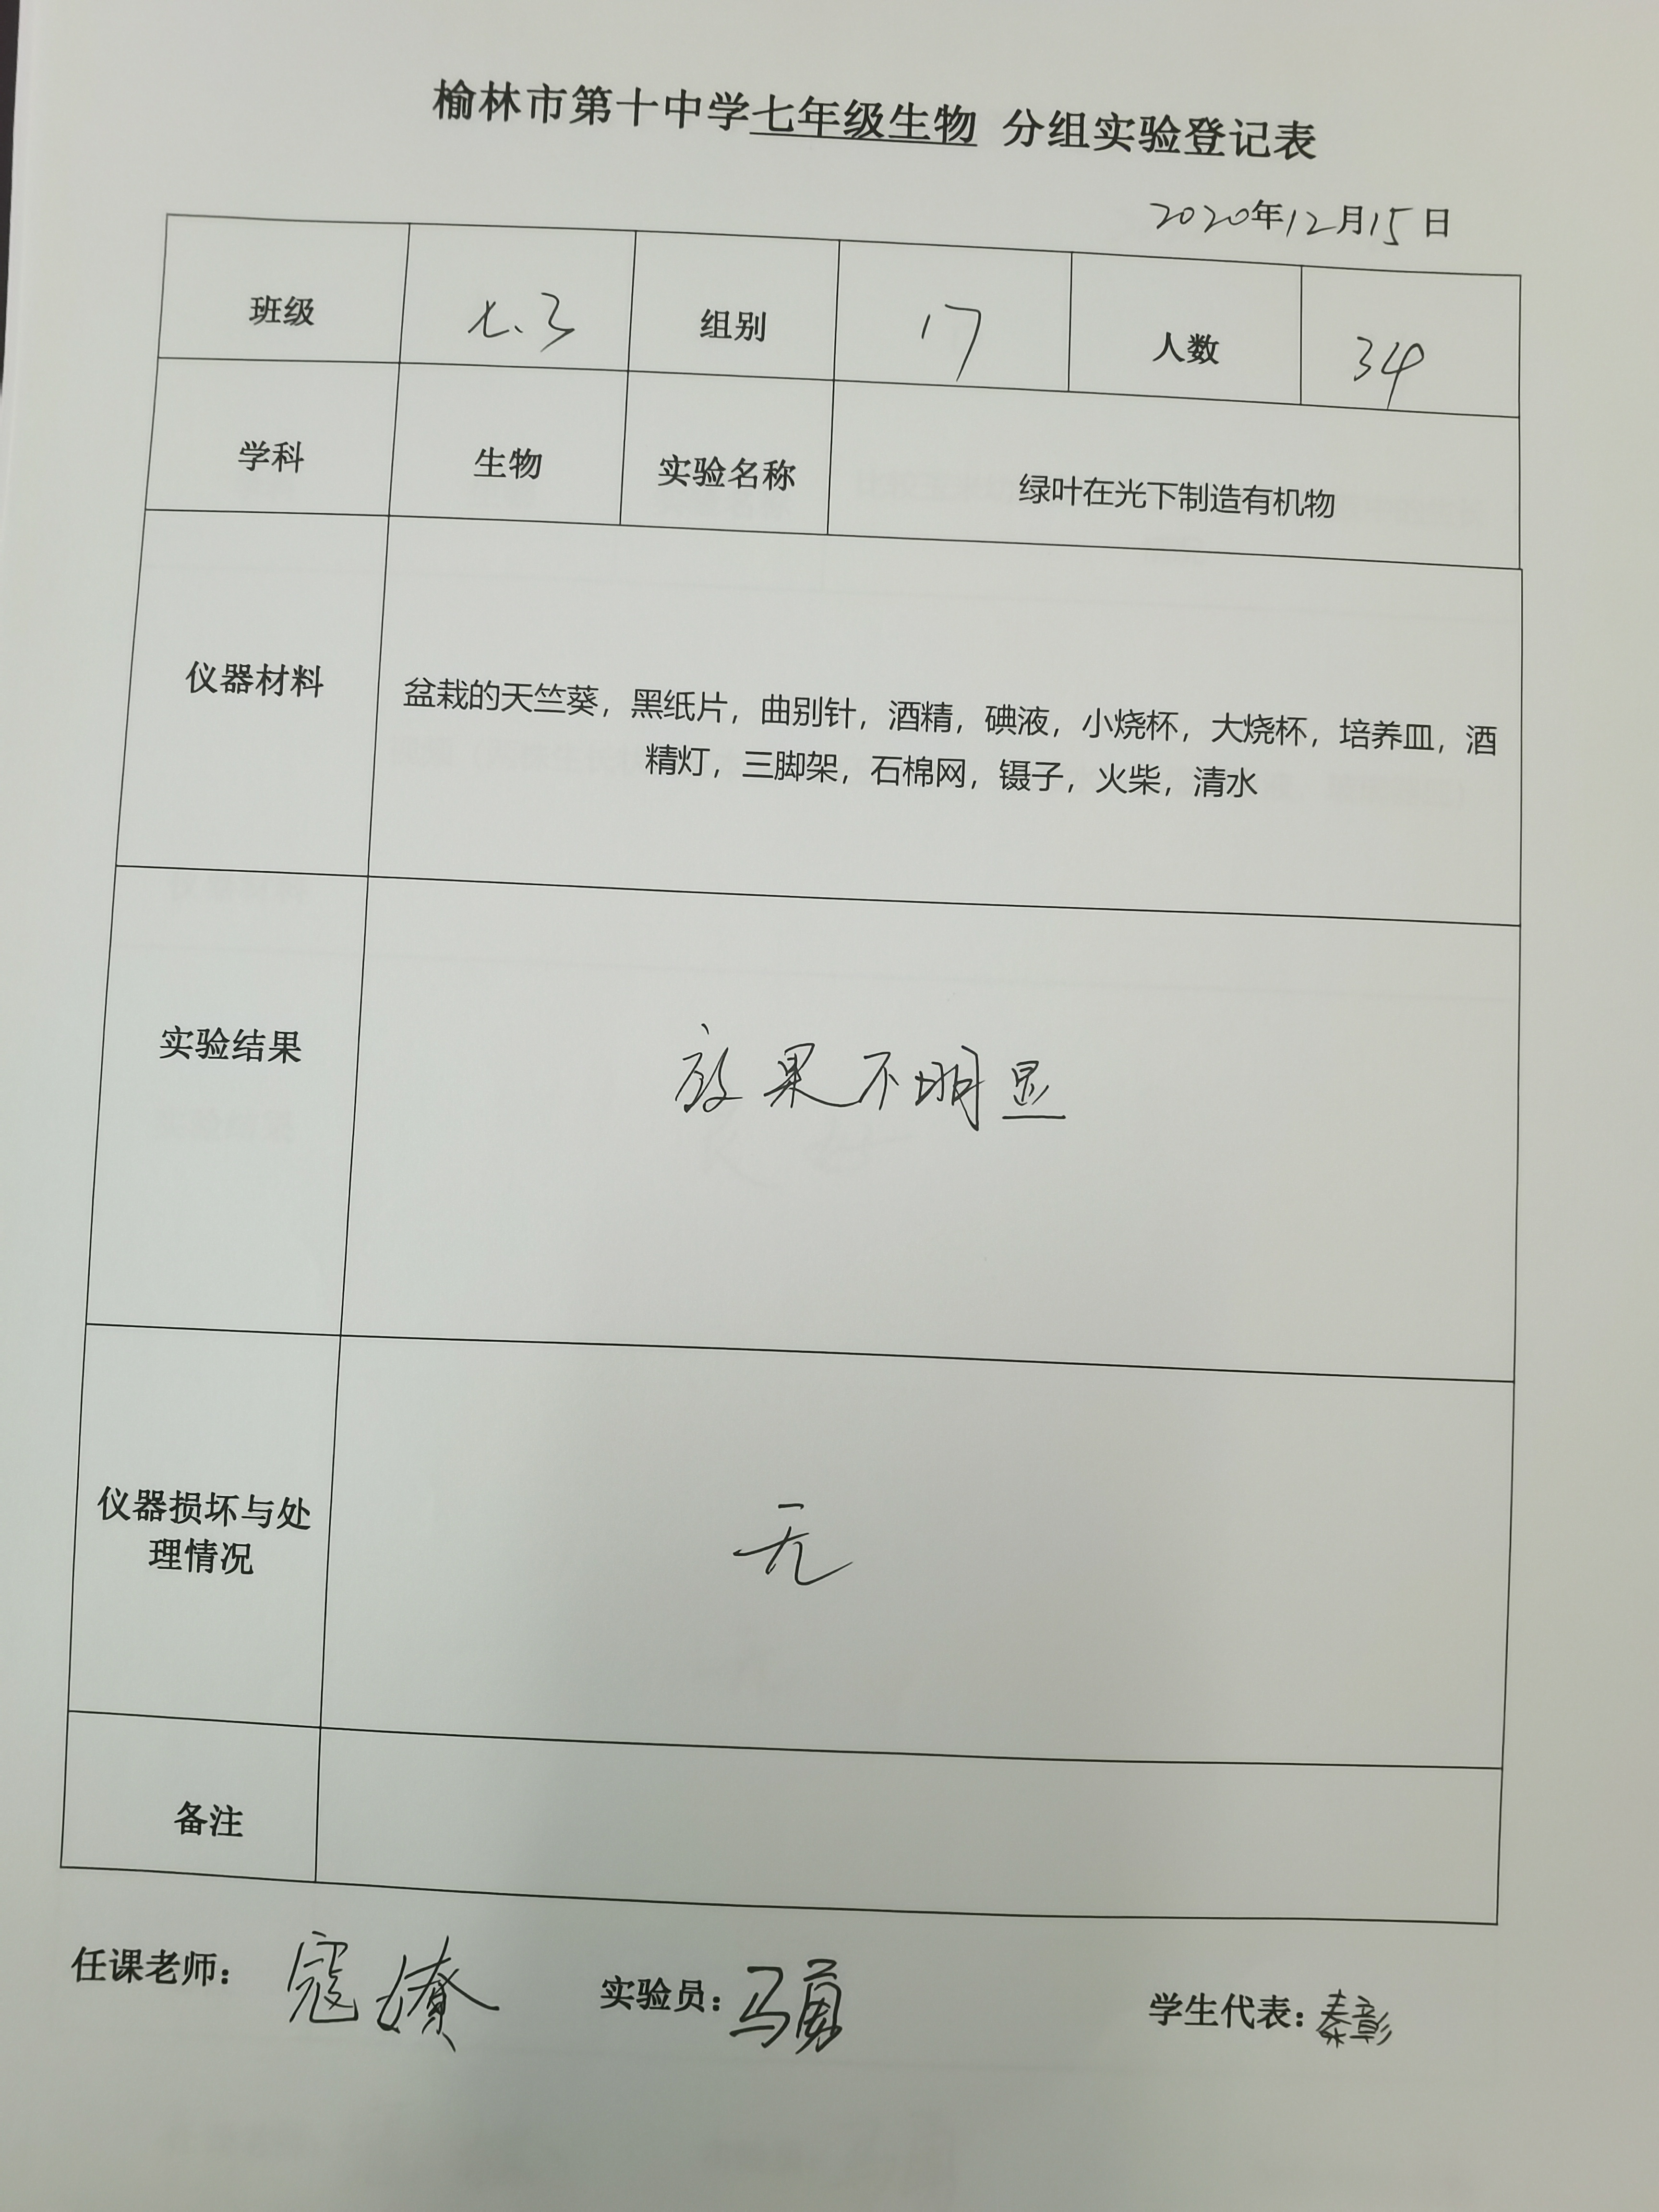 榆林市第十中学七年级生物 分组实验登记表
2020年12月15日
班级 七.3 组别 17 人数 34
学科 生物 实验名称 绿叶在光下制造有机物
仪器材料
盆栽的天竺葵，黑纸片，曲别针，酒精，碘液，小烧杯，大烧杯，培养皿，酒
精灯，三脚架，石棉网，镊子，火柴，清水
实验结果
效果不明显
仪器损坏与处
理情况
无
备注
任课老师： 寇 实验员：马勇 学生代表：秦彰